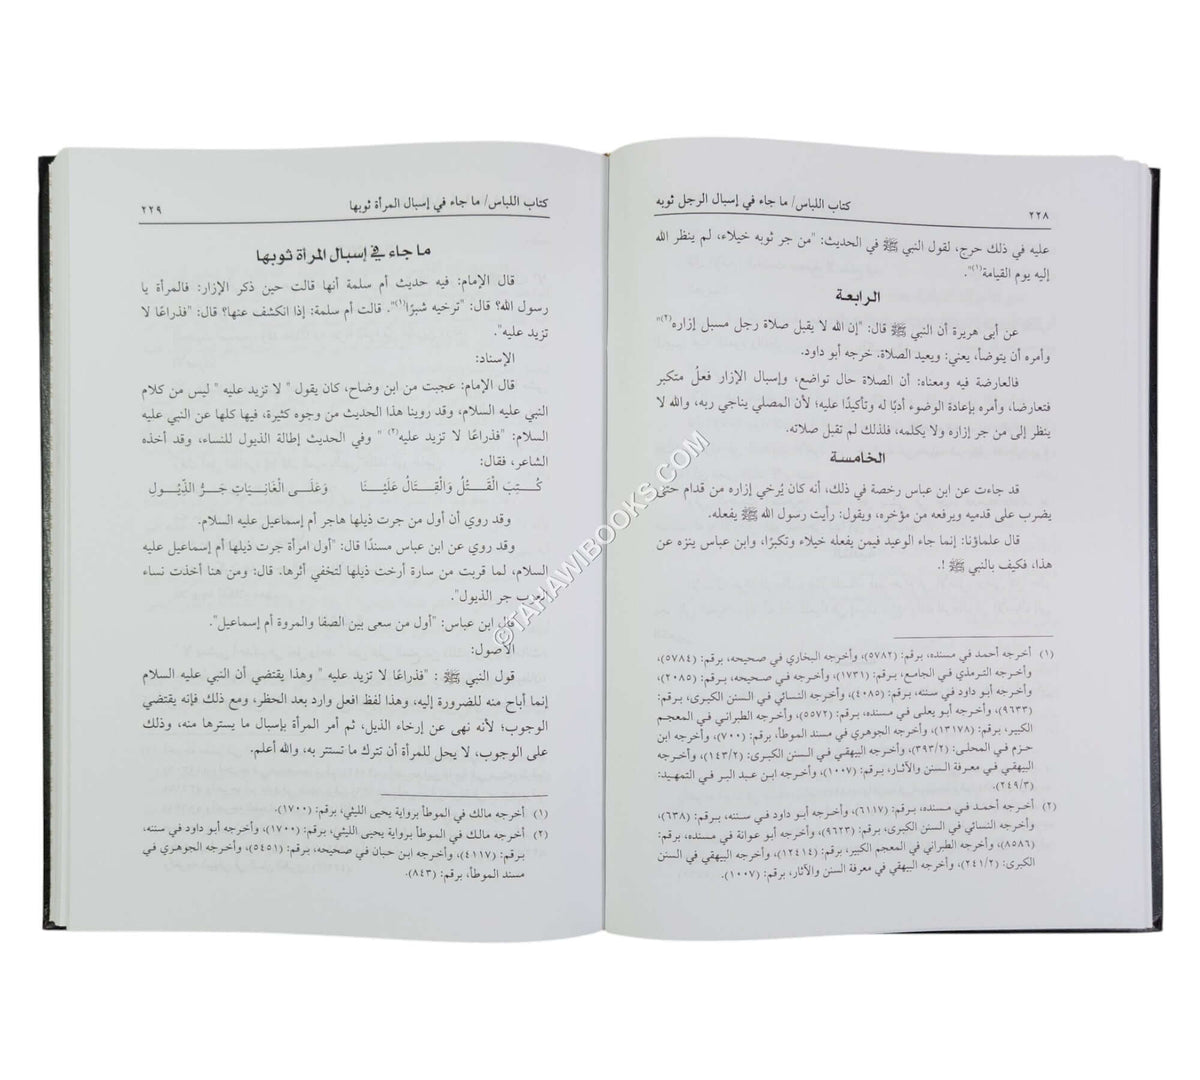 كتاب اللباس/ ما جاء في إسبال الرجل ثوبه
٢٢٨
عليه في ذلك حرج، لقول النبي ﷺ في الحديث: "من جر ثوبه خيلاء، لم ينظر الله
إليه يوم القيامة(١)".
الرابعة
عن أبى هريرة أن النبي ﷺ قال: "إن الله لا يقبل صلاة رجل مسبل إزاره(٢)"
وأمره أن يتوضأ، يعني: ويعيد الصلاة. خرجه أبو داود.
فالعارضة فيه ومعناه: أن الصلاة حال تواضع، وإسبال الإزار فعلُ متكبر
فتعارضا، وأمره بإعادة الوضوء أدبًا له وتأكيدًا عليه؛ لأن المصلي يناجي ربه، والله لا
ينظر إلى من جر إزاره ولا يكلمه، فلذلك لم تقبل صلاته.
الخامسة
قد جاءت عن ابن عباس رخصة في ذلك، أنه كان يُرخي إزاره من قدام حتى
يضرب على قدميه ويرفعه من مؤخره، ويقول: رأيت رسول الله ﷺ يفعله.
قال علماؤنا: إنما جاء الوعيد فيمن يفعله خيلاء وتكبرًا، وابن عباس ينزه عن
هذا، فكيف بالنبي ﷺ !.
(١) أخرجه أحمد في مسنده، برقم: (٥٧٨٢)، وأخرجه البخاري في صحيحه، برقم: (٥٧٨٤)،
وأخرجه الترمذي في الجامع، برقم: (١٧٣١)، وأخرجه أبو داود في سننه، برقم: (٤٠٨٥)، وأخرجه النسائي في السنن الكبرى، برقم: (٢٠٨٥)،
(٩٦٣٣)، وأخرجه أبو يعلى في مسنده، برقم: (٥٥٧٢)، وأخرجه الطبراني في المعجم
الكبير، برقم: (١٣١٧٨)، وأخرجه الجوهري في مسند الموطأ، برقم: (٧٠٠)، وأخرجه ابن
حزم في المحلى: (٣٩٣/٢)، وأخرجه البيهقي في السنن الكبرى: (١٤٣/٢)، وأخرجه
البيهقي في معرفة السنن والآثار، برقم: (١٠٠٧)، وأخرجه ابن عبد البر في التمهيد:
(٢٤٩/٣).
(٢) أخرجه أحمد في مسنده، برقم: (٦١١٧)، وأخرجه أبو داود في سننه، برقم: (٦٣٨)،
وأخرجه النسائي في السنن الكبرى، برقم: (٩٦٢٣)، وأخرجه أبو عوانة في مسنده، برقم:
(٨٥٨٦)، وأخرجه الطبراني في المعجم الكبير، برقم: (١٢٤١٤)، وأخرجه البيهقي في السنن
الكبرى: (٢٤١/٢)، وأخرجه البيهقي في معرفة السنن والآثار، برقم: (١٠٠٧).
كتاب اللباس/ ما جاء في إسبال المرأة ثوبها
٢٢٩
ما جاء في إسبال المرأة ثوبها
قال الإمام: فيه حديث أم سلمة أنها قالت حين ذكر الإزار: فالمرأة يا
رسول الله؟ قال: "ترخيه شبرًا(١)". قالت أم سلمة: إذا انكشف عنها؟ قال: "فذراعًا لا
تزيد عليه".
الإسناد:
قال الإمام: عجبت من ابن وضاح، كان يقول " لا تزيد عليه " ليس من كلام
النبي عليه السلام، وقد روينا هذا الحديث من وجوه كثيرة، فيها كلها عن النبي عليه
السلام: "فذراعًا لا تزيد عليه(٢) " وفي الحديث إطالة الذيول للنساء، وقد أخذه
الشاعر، فقال:
كُتِبَ الْقَتْلُ وَالْقِتَالُ عَلَيْنَا وَعَلَى الْغَانِيَاتِ جَرُّ الذُّيُولِ
وقد روي أن أول من جرت ذيلها هاجر أم إسماعيل عليه السلام.
وقد روي عن ابن عباس مسندًا قال: "أول امرأة جرت ذيلها أم إسماعيل عليه
السلام، لما قربت من سارة أرخت ذيلها لتخفي أثرها. قال: ومن هنا أخذت نساء
العرب جر الذيول".
قال ابن عباس: "أول من سعى بين الصفا والمروة أم إسماعيل".
الأصول:
قول النبي ﷺ : "فذراعًا لا تزيد عليه" وهذا يقتضي أن النبي عليه السلام
إنما أباح منه للضرورة إليه، وهذا لفظ افعل وارد بعد الحظر، ومع ذلك فإنه يقتضي
الوجوب؛ لأنه نهى عن إرخاء الذيل، ثم أمر المرأة بإسبال ما يسترها منه، وذلك
على الوجوب، لا يحل للمرأة أن تترك ما تستتر به، والله أعلم.
(١) أخرجه مالك في الموطأ برواية يحيى الليثي، برقم: (١٧٠٠).
(٢) أخرجه مالك في الموطأ برواية يحيى الليثي، برقم: (١٧٠٠)، وأخرجه أبو داود في سننه،
برقم: (٤١١٧)، وأخرجه ابن حبان في صحيحه، برقم: (٥٤٥١)، وأخرجه الجوهري في
مسند الموطأ، برقم: (٨٤٣).
©TAHAWIBOOKS.COM